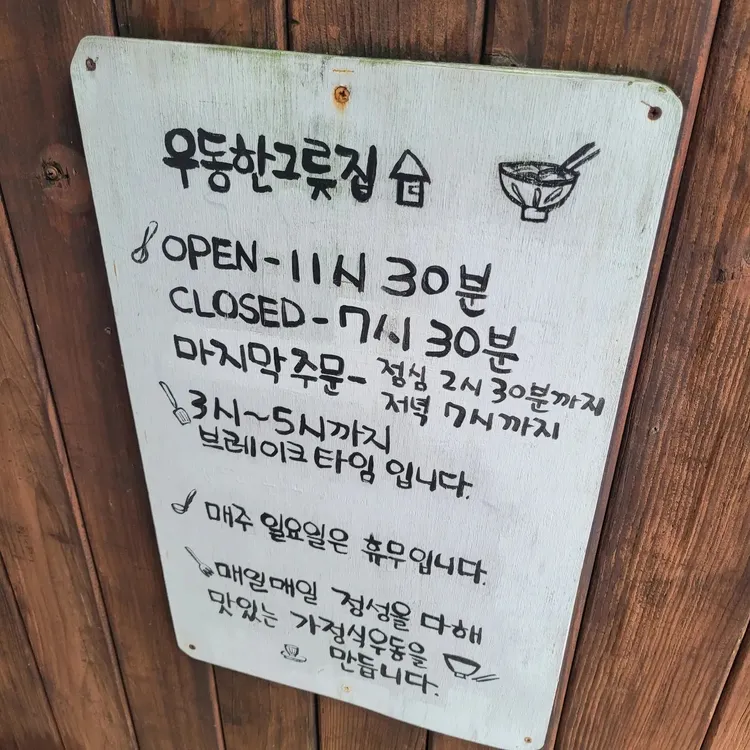 우동한그릇집
OPEN-11시 30분
CLOSED-7시 30분
마지막주문- 점심 2시 30분까지
저녁 7시까지
3시~5시까지
브레이크타임 입니다.
매주 일요일은 휴무입니다.
매일매일 정성을 다해
맛있는 가정식우동을
만듭니다.